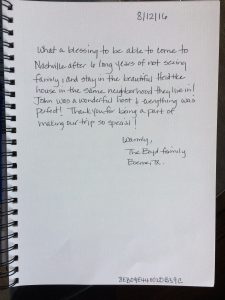 8/12/16
What a blessing to be able to come to
Nashville after 6 long years of not seeing
family, and stay in the beautiful
house in the same neighborhood they live in!
John was a wonderful host & everything was
perfect! Thank you for being a part of
making our trip so special!
Warmly,
The Boyd family
Boerne TX.